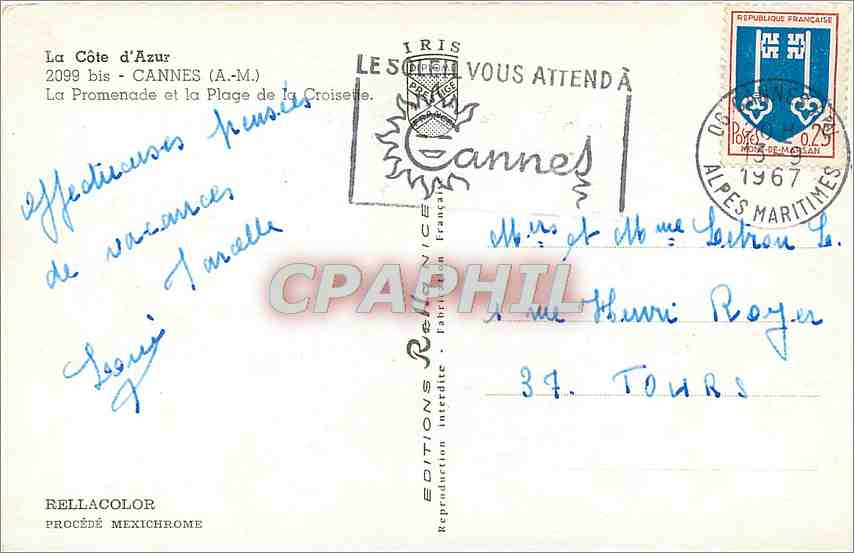 La Côte d'Azur
2099 bis - CANNES (A.-M.)
La Promenade et la Plage de la Croisette.
affectueuses pensées
de vacances
Marcelle
Louis
RELLACOLOR
PROCÉDÉ MEXICHROME
IRIS
DIPLOME
PRESTIGE
FRANCE
LE SOLEIL VOUS ATTEND À
Cannes
EDITIONS Rella NICE
Reproduction interdite - Fabrication Française
CPAPHIL
REPUBLIQUE FRANÇAISE
Postes 0,25
MONT-DE-MARSAN
06 CANNES
13-9
1967
ALPES MARITIMES
Mrs et Mme Letron L.
1 rue Henri Royer
37. TOURS